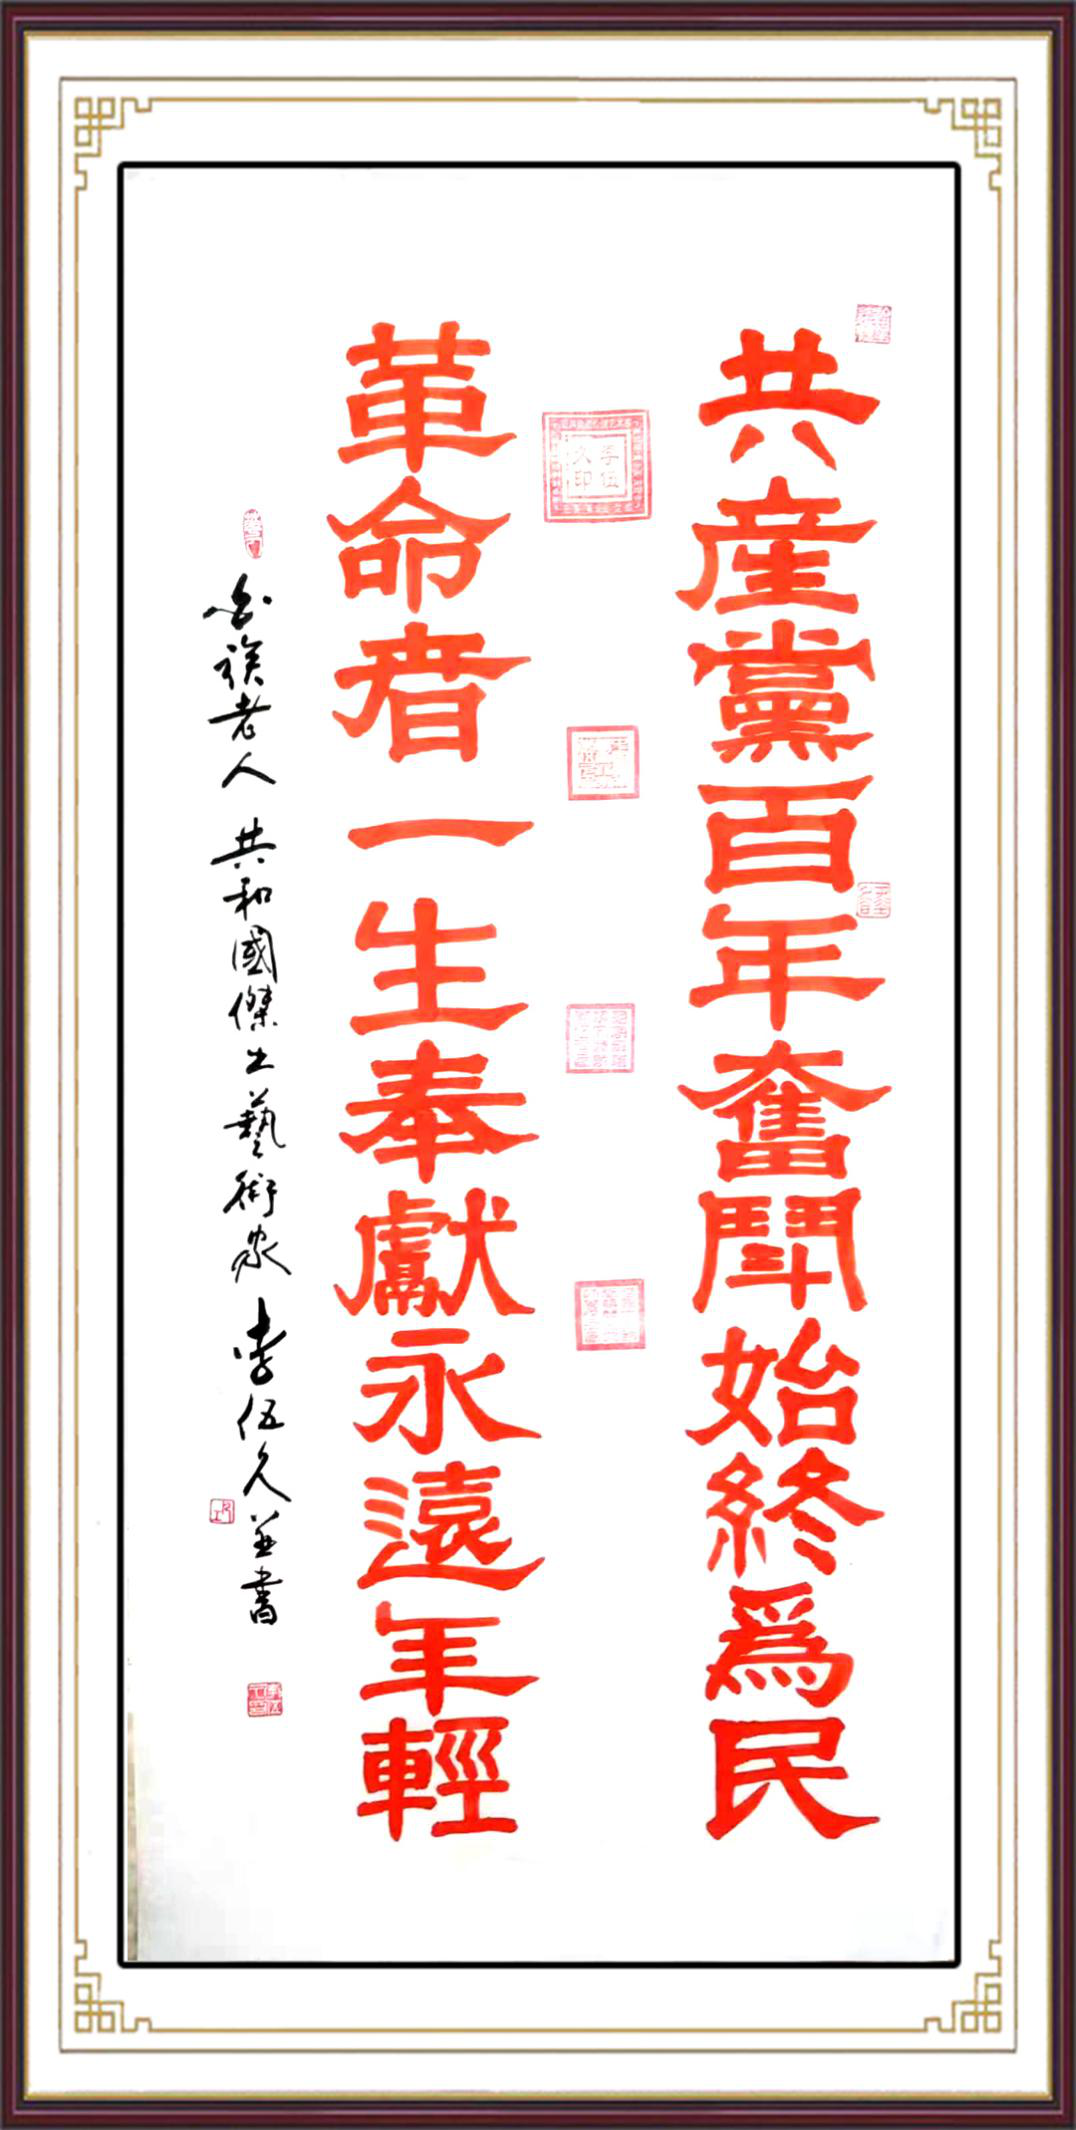 共産黨百年奮鬪始終爲民
革命者一生奉獻永遠年輕
白族老人 共和國傑出藝術家 李伍久并書
李伍久印